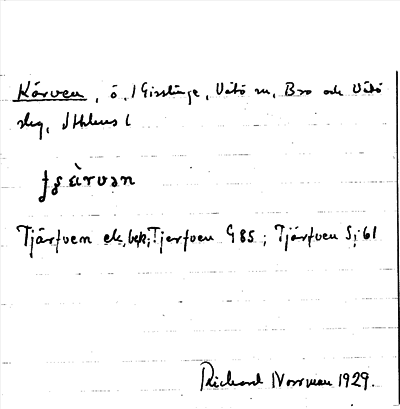 Kärven, ö, i Gisslinge, Vätö sn, Bro och Vätö
slg, Sthlms l
Tjärfven ek, bek; Tjerfven G 85; Tjärfven Sj 61
Richard Norrman 1929.